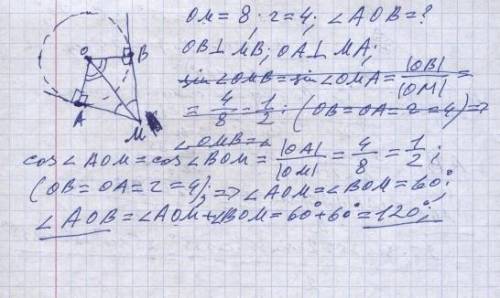 O B A M
OM = 8; r = 4; ∠AOB = ?
OB ⊥ MB; OA ⊥ MA;
sin∠OMB = sin∠OMA = |OB|/|OM| =
= 4/8 = 1/2; (OB = OA = r = 4) ⇒
∠OMB =
cos∠AOM = cos∠BOM = |OA|/|OM| = 4/8 = 1/2;
(OB = OA = r = 4); ⇒ ∠AOM = ∠BOM = 60°;
∠AOB = ∠AOM + ∠BOM = 60° + 60° = 120°;